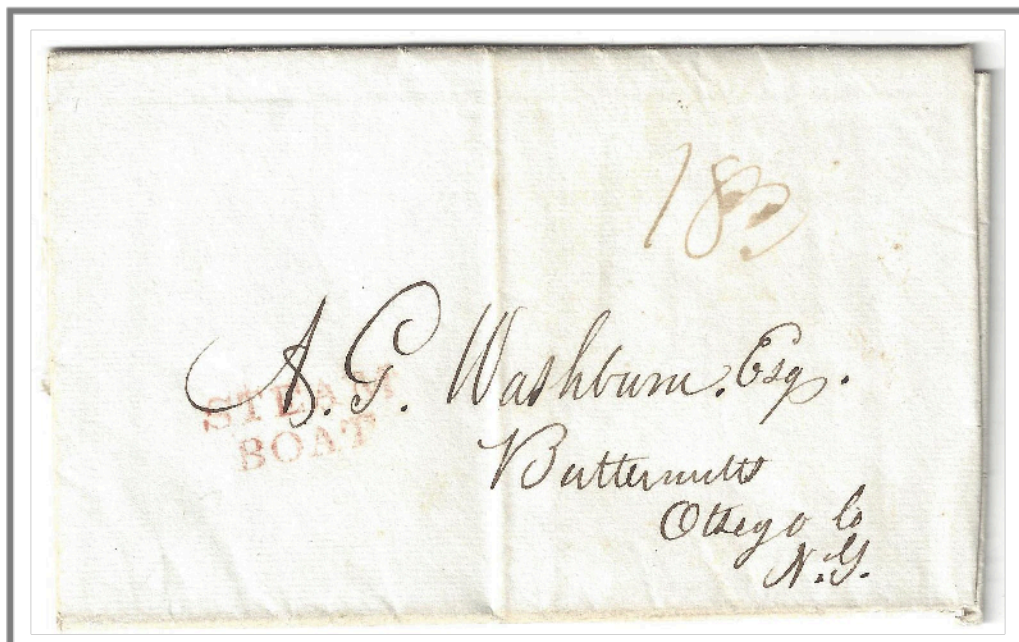 A. G. Washburn. Esq.
STEAM
BOAT
Butternutts
Otsego Co
N.Y.